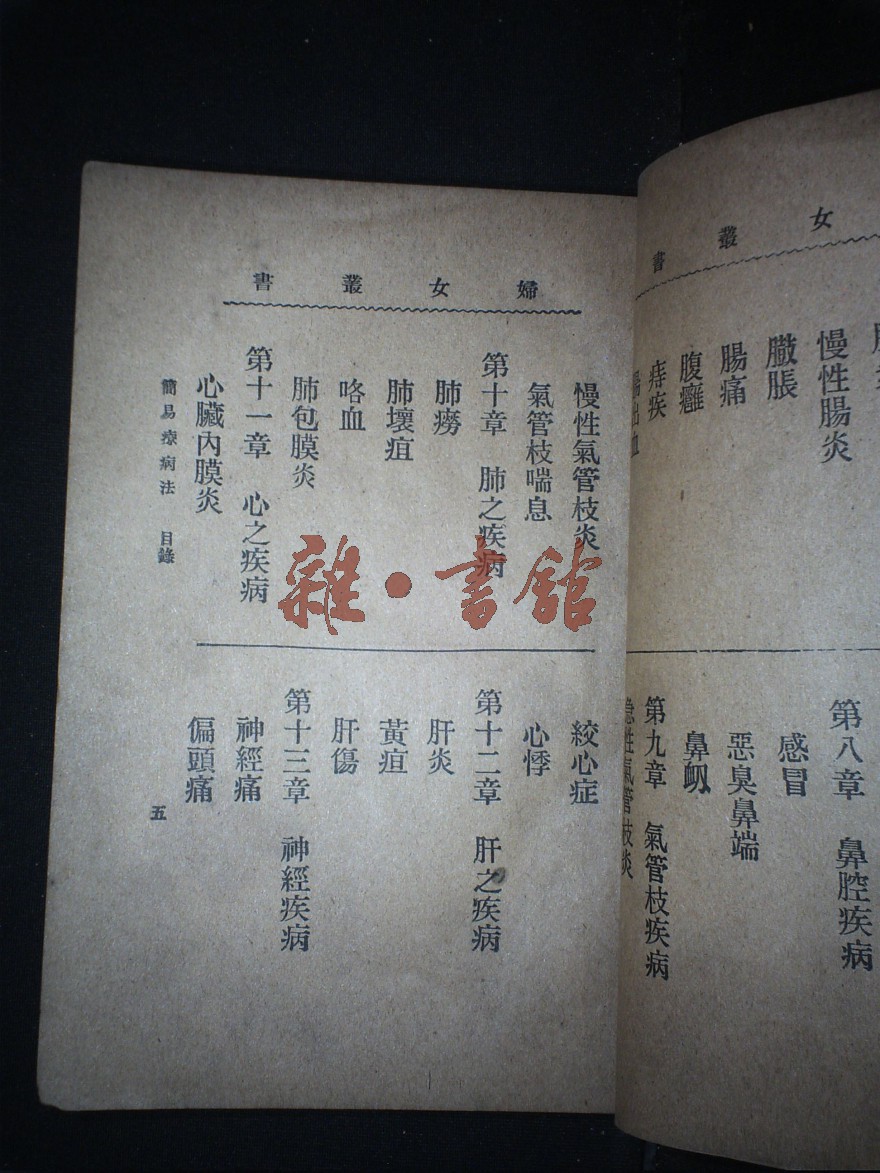 女叢書
慢性腸炎
臌脹
腸痛
痔疾
腸出血
第八章　鼻腔疾病
感冒
惡臭鼻端
鼻衂
第九章　氣管枝疾病
急性氣管枝炎
婦女叢書
慢性氣管枝炎
氣管枝喘息
第十章　肺之疾病
肺癆
肺壞疽
咯血
肺包膜炎
第十一章　心之疾病
心臟內膜炎
絞心症
心悸
第十二章　肝之疾病
肝炎
黃疸
肝傷
第十三章　神經疾病
神經痛
偏頭痛
簡易療病法　目錄
五
雜・書館